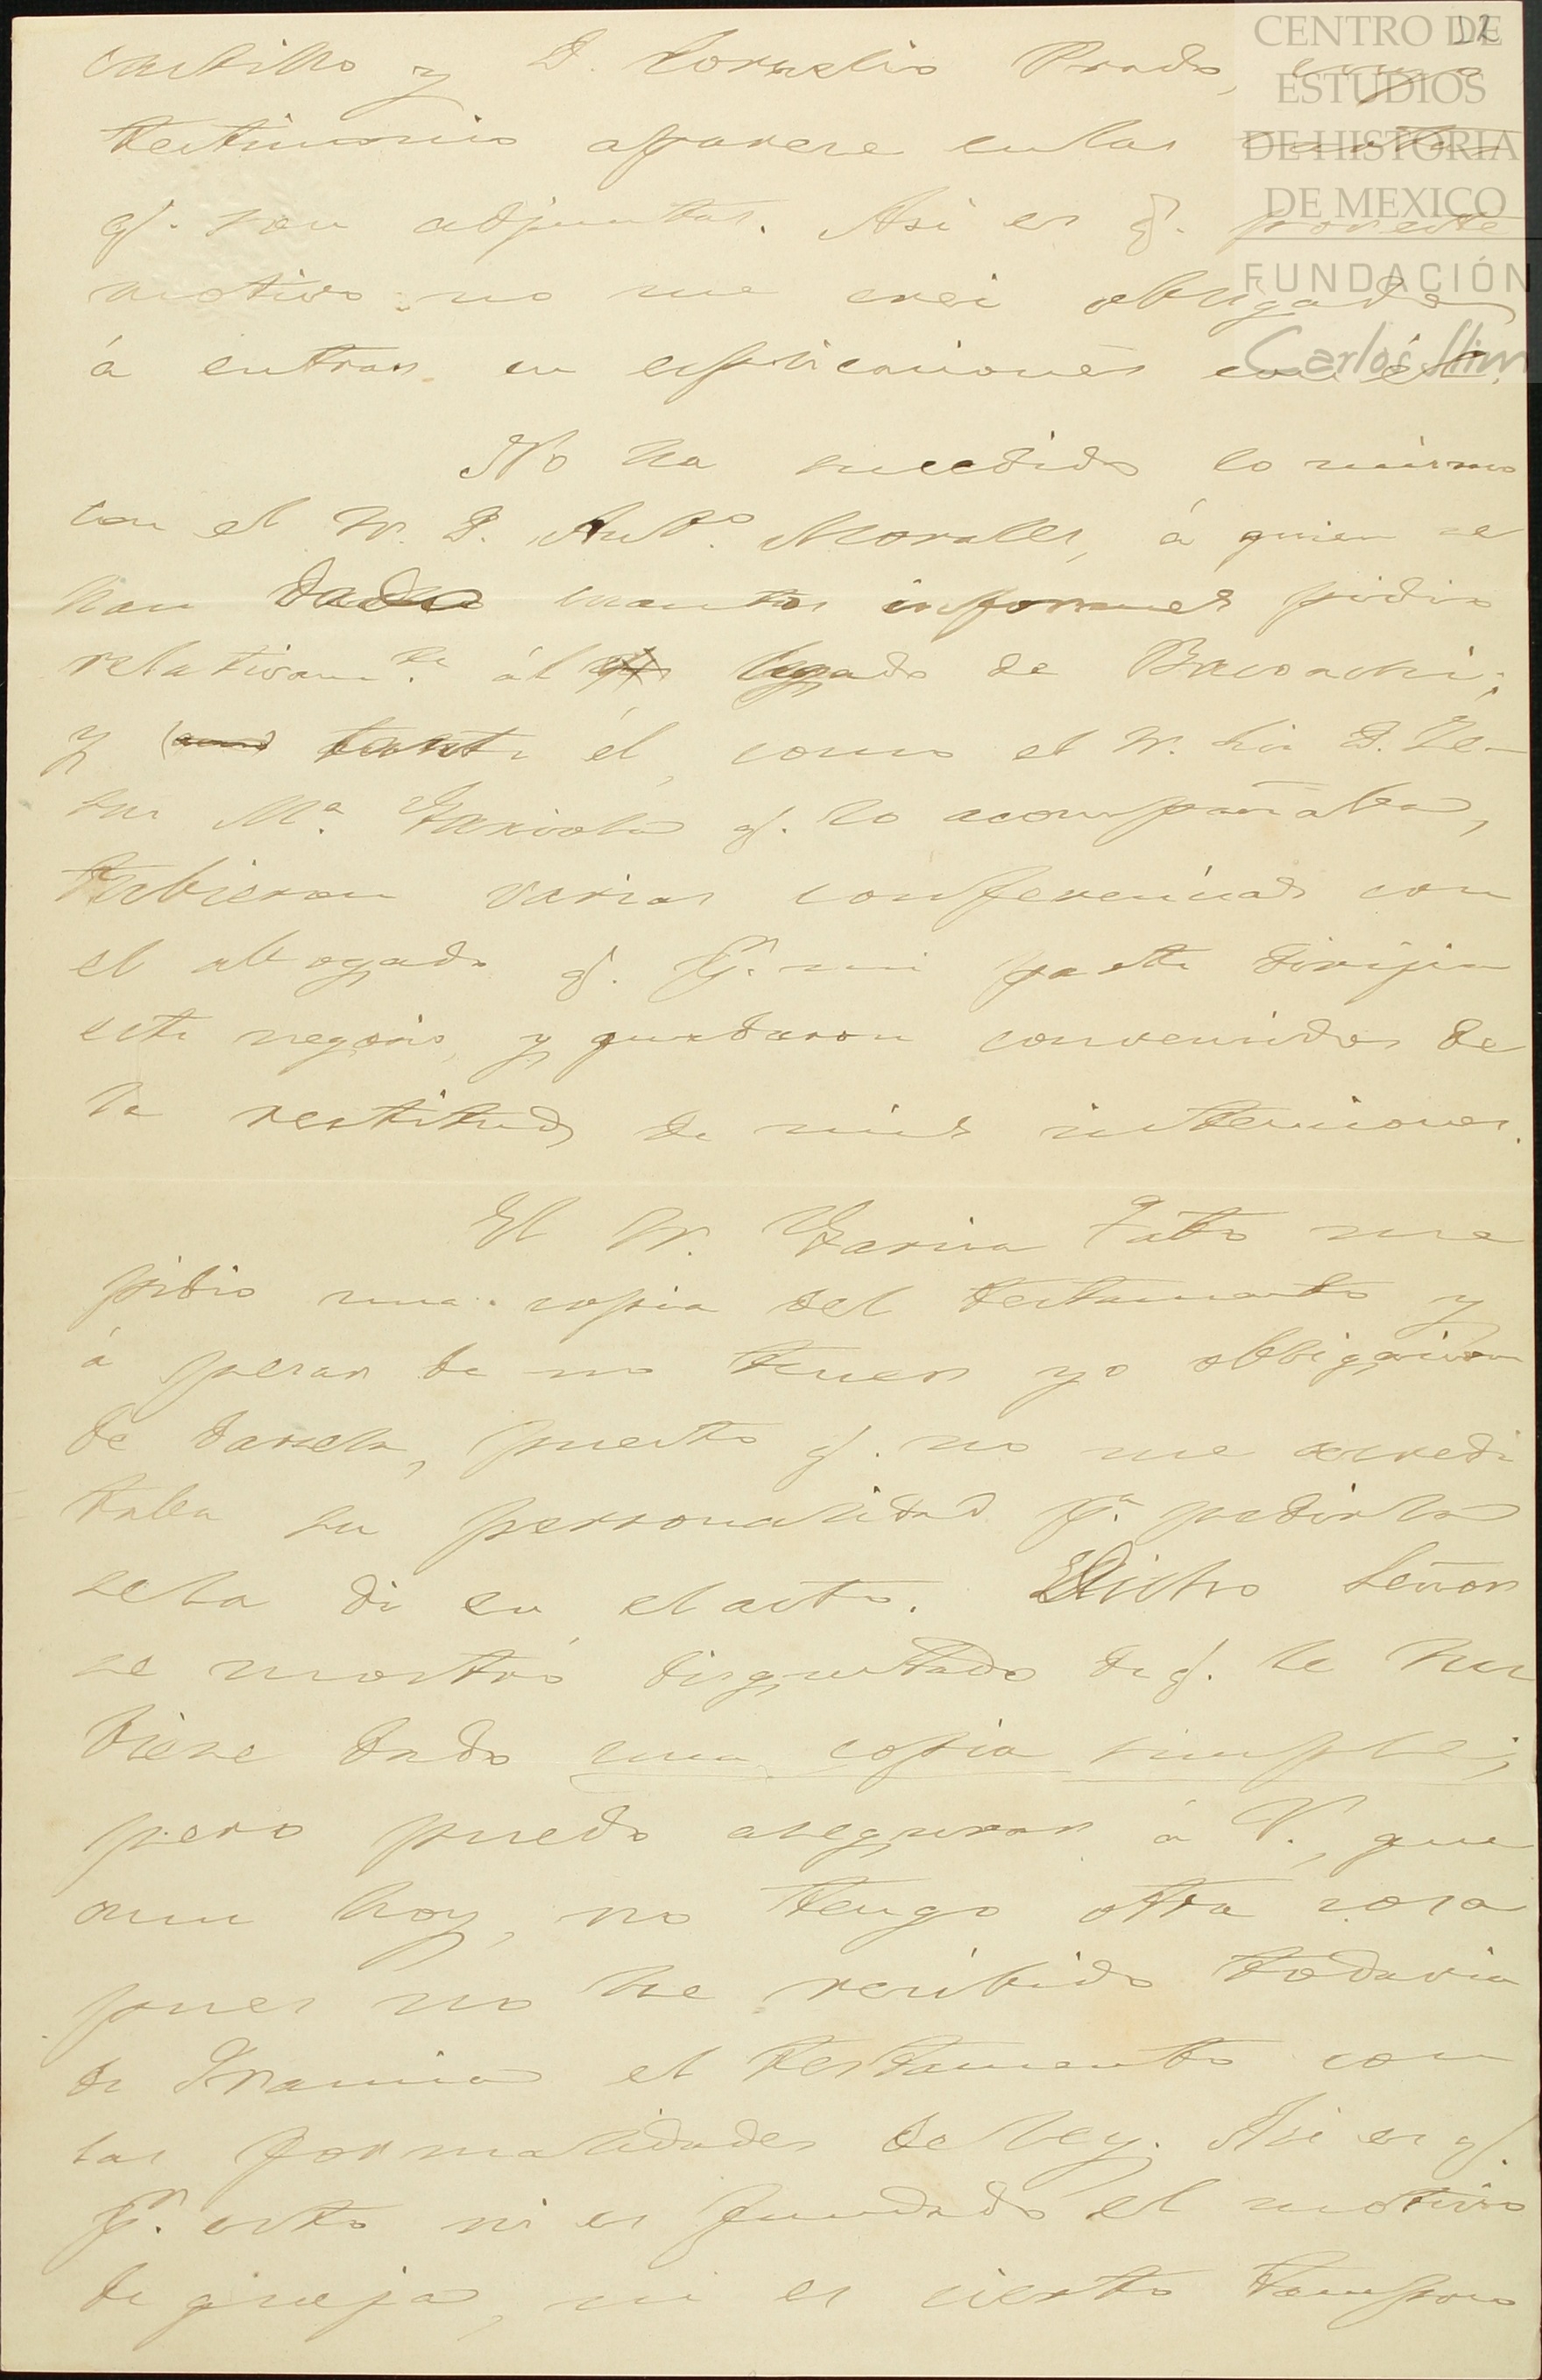 12
CENTRO DE
ESTUDIOS
DE HISTORIA
DE MEXICO
FUNDACIÓN
Carlos Slim
Castillo y D. Cornelio Prado, cuyo
testimonio aparece enlas notas
q. van adjuntas. Asi es q. poreste
motivo no me crei obligado
á entrar en esplicaciones con él.
No ha sucedido lo mismo
con el Sr. D. Anto. Morales, á quien se
han dado cuantos informes pidio
relativamte. ál legado de Bacoachi;
y tanto él, como el Sr. Lic D. Je-
sus Ma. Gaxiola q. lo acompañaba,
tubieron varias conferencias con
el abogado q. pr. mi parte dirijia
este negocio, y quedaron convencidos de
la rectitud de mis intenciones.
El Sr. Garcia Tato me
pidio una copia del testamento y
á pesar de no tener yo obligacion
de darsela, puesto q. no me acredi
taba su personalidad pa. pedirla
sela di en elacto. Dicho Señor
se mostró disgustado de q. le hu
biese dado una copia simple;
pero puedo asegurar á V., que
aun hoy, no tengo otra cosa
pues no he recibido todavia
de Francia el testamento con
las formalidades de ley. Asi es q.
pr. esto ni es fundado el motivo
de queja, ni es cierto tampoco